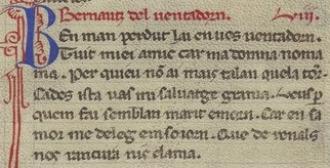 Bernautz del uentadorn. Lviij.
BEn man perdut lai en ues uentadorn.
Tuit miei amic car ma domna nom a
ma. Per quieu nō ai mais talan quela tor̄.
Cades ista uas mi saluatge grama. Ueus per
quem feu semblan marit emorn. Car en sa
mor me deleg em soiorn. Que de ren als
nos rancura nis clama.